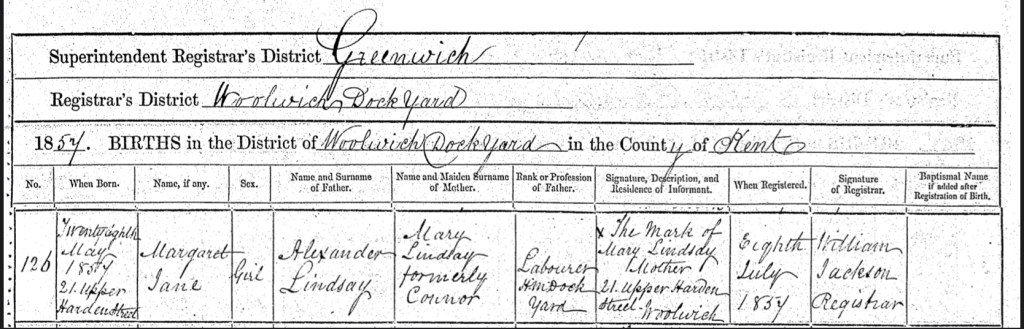 Superintendent Registrar's District Greenwich
Registrar's District Woolwich Dock Yard
1857. BIRTHS in the District of Woolwich Dock Yard in the County of Kent
No. When Born. Name, if any. Sex. Name and Surname of Father. Name and Maiden Surname of Mother. Rank or Profession of Father. Signature, Description, and Residence of Informant. When Registered. Signature of Registrar. Baptismal Name if added after Registration of Birth.
126
Twenty eighth
May
1857
21. Upper
Harden Street
Margaret
Jane
Girl
Alexander
Lindsay
Mary
Lindsay
formerly
Connor
Labourer
HM Dock
Yard
X The Mark of
Mary Lindsay
Mother
21. Upper Harden
Street Woolwich
Eighth
July
1857
William
Jackson
Registrar